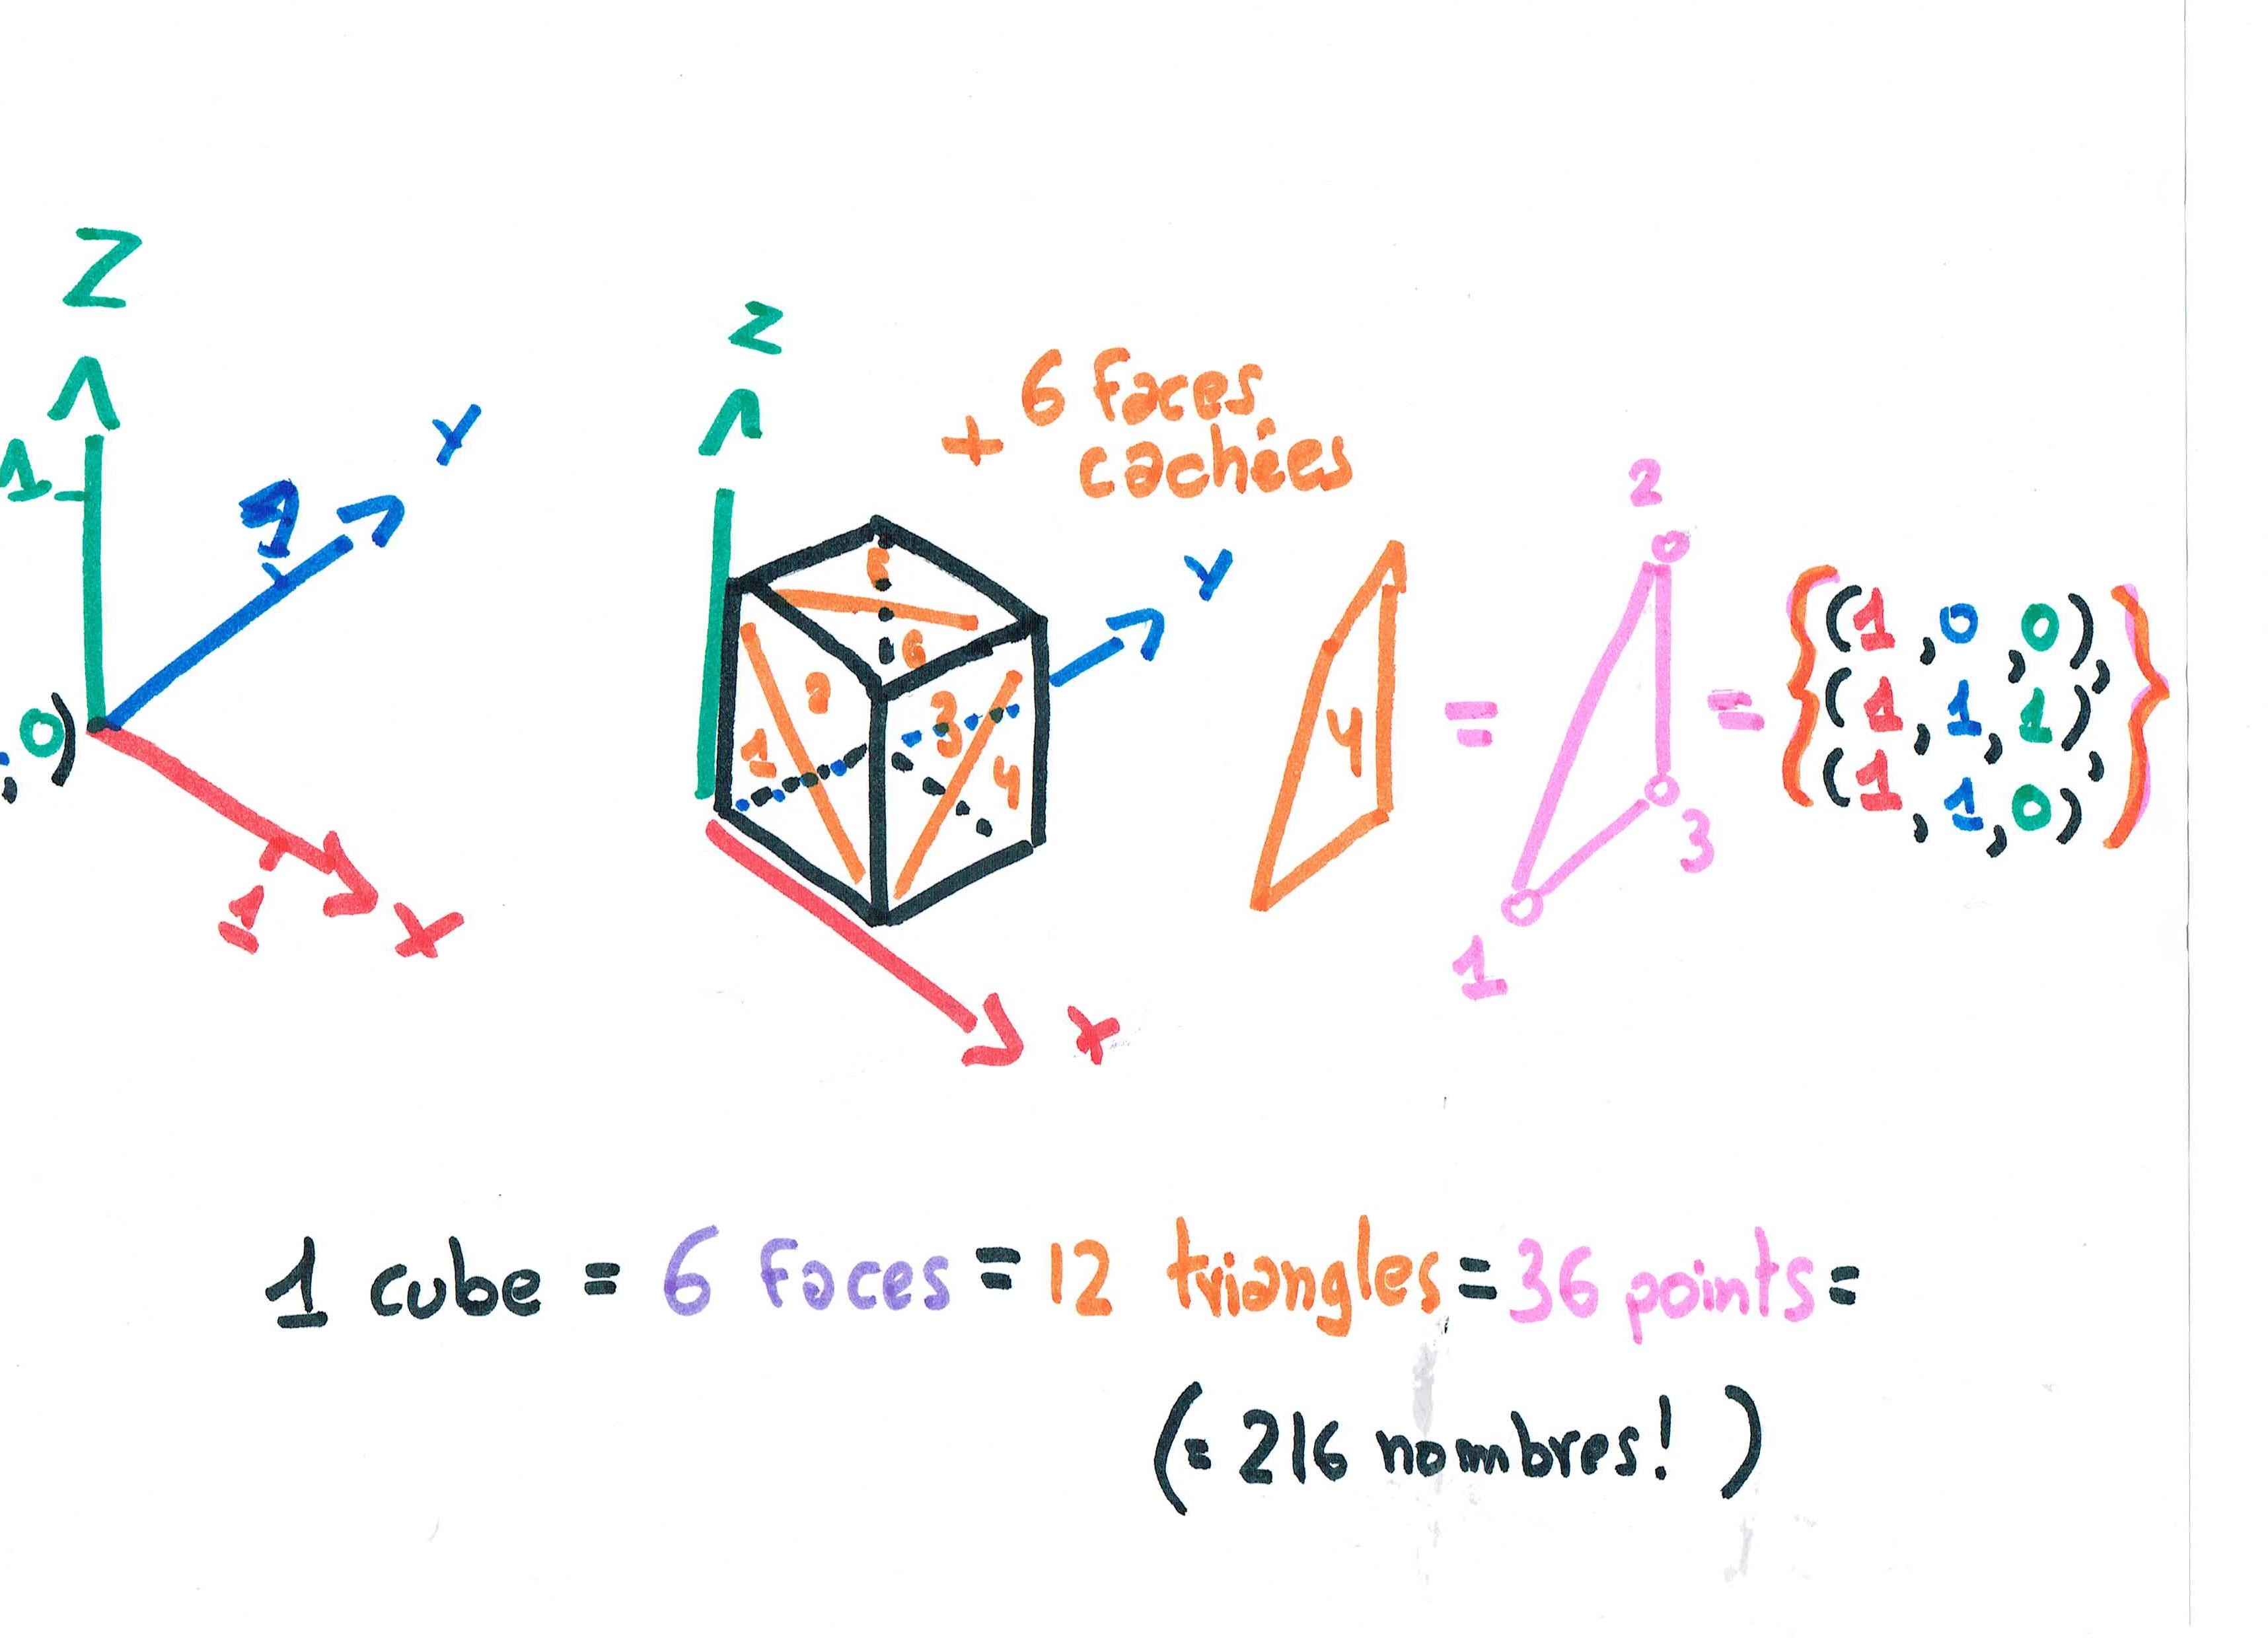 Z
1
1
Y
, 0)
1
X
z
+ 6 faces
cachées
Y
5
6
2
1
3
4
X
4
=
2
3
1
=
{(1, 0, 0),
(1, 1, 1),
(1, 1, 0)}
1 cube = 6 faces = 12 triangles = 36 points =
(= 216 nombres! )